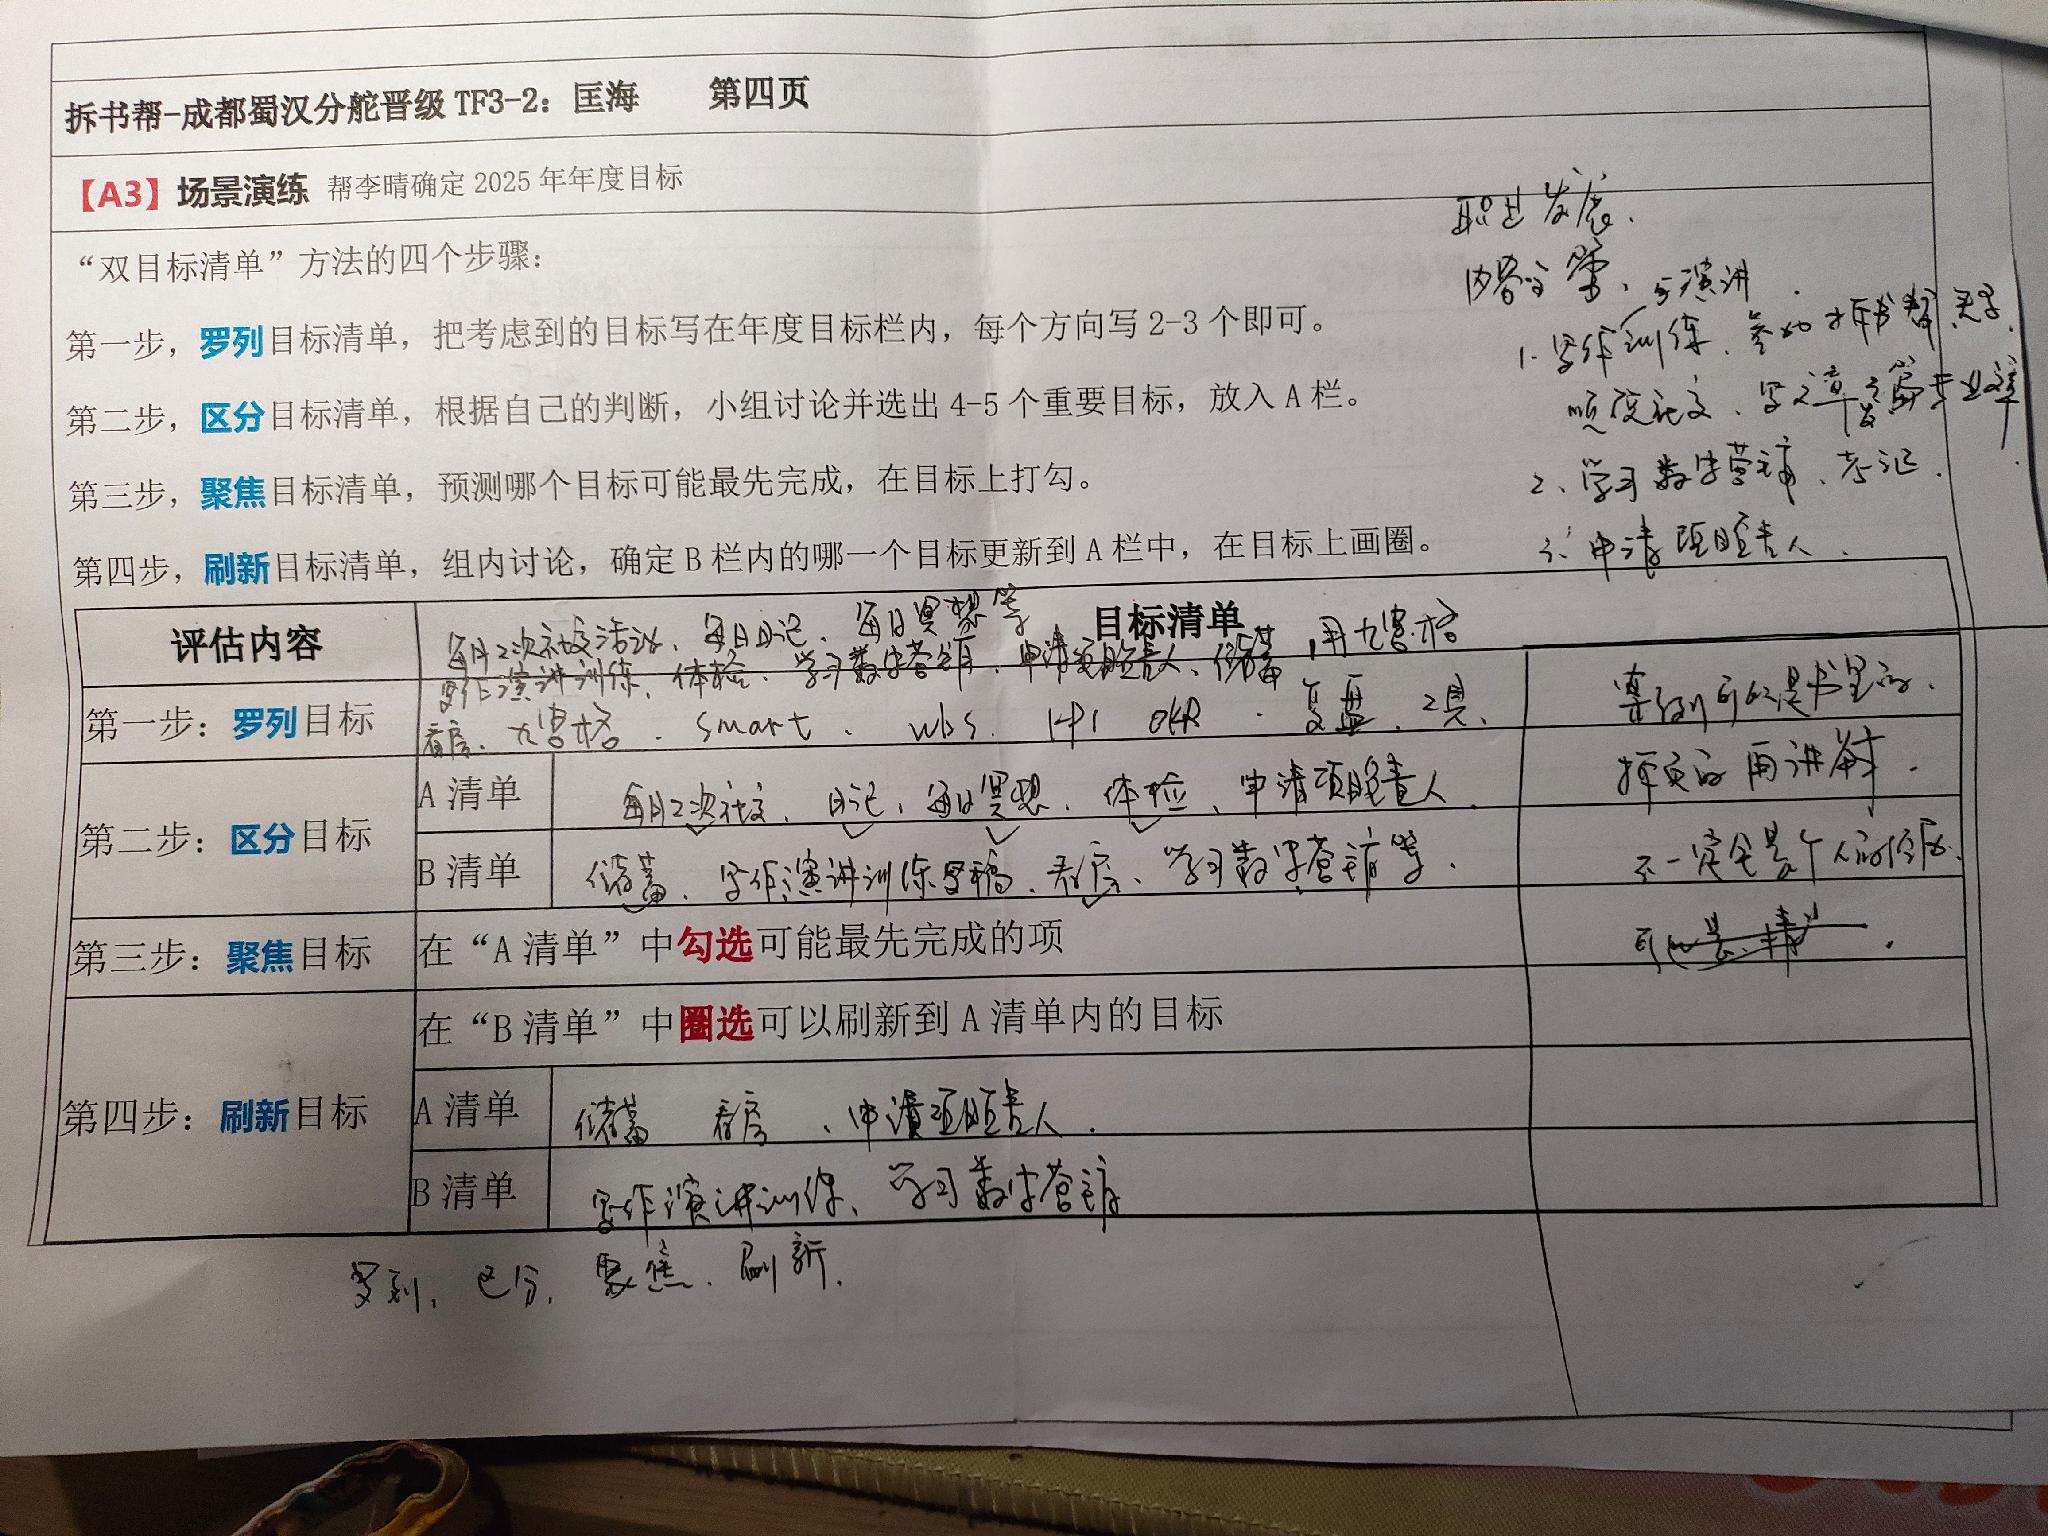 拆书帮-成都蜀汉分舵晋级TF3-2：匡海 第四页
【A3】场景演练 帮李晴确定2025年年度目标
“双目标清单”方法的四个步骤：
第一步，罗列目标清单，把考虑到的目标写在年度目标栏内，每个方向写2-3个即可。
第二步，区分目标清单，根据自己的判断，小组讨论并选出4-5个重要目标，放入A栏。
第三步，聚焦目标清单，预测哪个目标可能最先完成，在目标上打勾。
第四步，刷新目标清单，组内讨论，确定B栏内的哪一个目标更新到A栏中，在目标上画圈。
职业发展.
与演讲.
1.写作训练、参加拆书帮
写文章
2、学习数字营销、考证.
3、申请项目负责人.
评估内容
目标清单
每月2次社交活动、每日日记、每日冥想等
用九宫格
写作演讲训练、体检、学习数字营销、申请项目负责人、储蓄
第一步：罗列目标
看房、九宫格、smart、wbs. OKR 复盘、工具、
案例可以是书里的.
第二步：区分目标
A清单
每月2次社交、日记、每日冥想、体检、申请项目负责人.
再讲
B清单
储蓄、写作演讲训练写稿、看房、学习数字营销等.
不一定全是个人的
第三步：聚焦目标
在“A清单”中勾选可能最先完成的项
第四步：刷新目标
在“B清单”中圈选可以刷新到A清单内的目标
A清单
储蓄 看房、申请项目负责人.
B清单
写作演讲训练、学习数字营销
罗列、区分、聚焦、刷新.